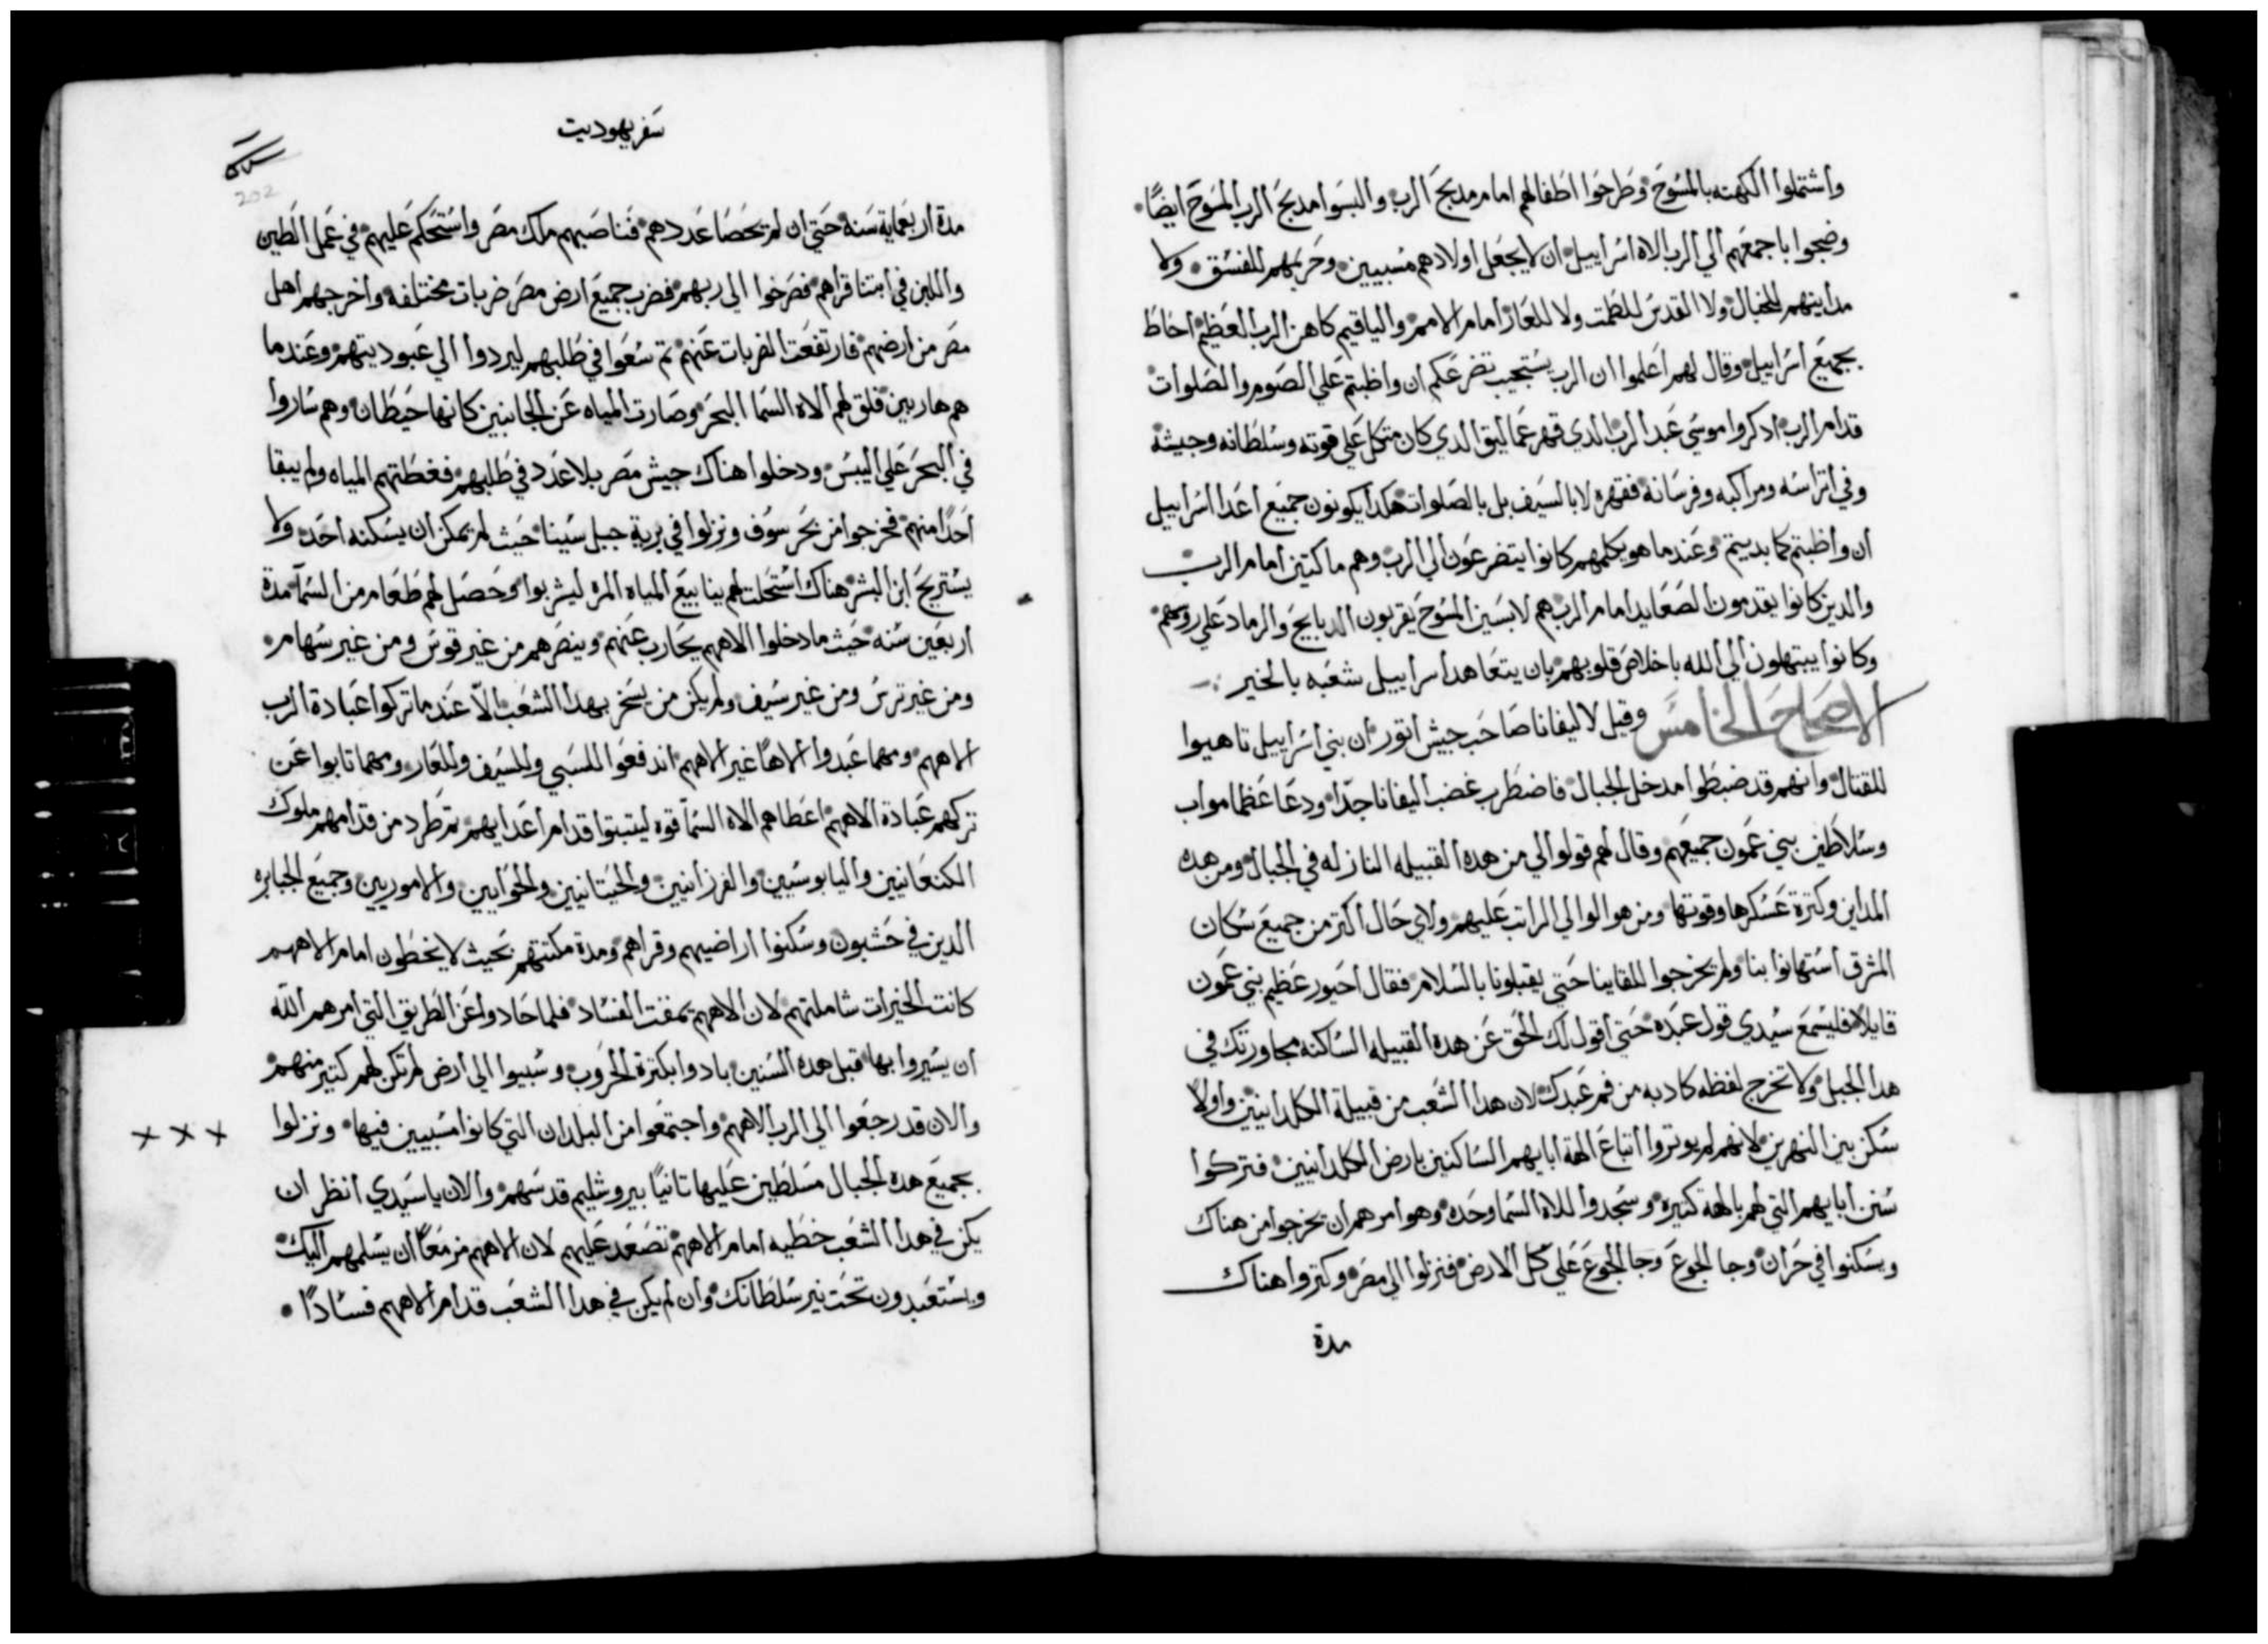 واشتملوا الكهنه بالمسوح وطرحوا اطفالهم امام مدبح الرب والبسوا مدبح الرب المسوح ايضًا
وضجوا باجمعهم الي الرب الاه اسراييل ان لا يجعل اولادهم مسبيين وحريمهم للفسق ولا
مداينهم للخبال ولا القدس للطمت ولا للعار امام الامم والياقيم كاهن الرب العظيم احاط
بجميع اسراييل وقال لهم اعلموا ان الرب يستجيب تضرعكم ان واظبتم علي الصوم والصلوات
قدام الرب ادكروا موسي عبد الرب الدي قهر عماليق الدي كان متكل علي قوته وسلطانه وجيشه
وفي اتراسه ومراكبه وفرسانه فقهره لا بالسيف بل بالصلوات هكدا يكونون جميع اعدا اسراييل
ان واظبتم كما بديتم وعندما هو يكلمهم كانوا يتضرعون الي الرب وهم ماكتين امام الرب
والدين كانوا يقدمون الصعايد امام الرب هم لابسين المسوح يقربون الدبايح والرماد علي روسهم
وكانوا يبتهلون الي الله باخلاص قلوبهم بان يتعاهد اسراييل شعبه بالخير
الاصحاح الخامس وقيل لاليفانا صاحب جيش اتور ان بني اسراييل تاهبوا
للقتال وانهم قد ضبطوا مدخل الجبال فاضطرب غضب اليفانا جدًا ودعا عظما مواب
وسلاطين بني عمون جميعهم وقال لهم قولوا لي من هده القبيله النازله في الجبال ومن هده
المداين وكترة عسكرها وقوتها ومن هو الوالي المراتب عليهم ولاي حال اكتر من جميع سكان
المشرق استهانوا بنا ولم يخرجوا للقاينا حتي يقبلونا بالسلام فقال احيور عظيم بني عمون
قايلاً فليسمع سيدي قول عبده حتي اقول لك الحق عن هده القبيله الساكنه مجاورتك في
هدا الجبل ولا تخرج لفظه كادبه من فم عبدك لان هدا الشعب من قبيلة الكلدانيين واولا
سكن بين النهرين لانهم لم يوتروا اتباع الهة ابايهم الساكنين بارض الكلدانيين فتركوا
سنن ابايهم التي لهم بالهة كتيره وسجدوا للاه السما وحده وهو امرهم ان يخرجوا من هناك
ويسكنوا في حران وجا الجوع وجا الجوع علي كل الارض فنزلوا الي مصر وكتروا هناك
مدة
سفر يهوديت
202
مدة اربعماية سنه حتي ان لم يحصا عددهم فناصبهم ملك مصر واستحكم عليهم في عمل الطين
واللبن في ابتنا قراهم فصرخوا الي ربهم فضرب جميع ارض مصر ضربات مختلفه واخرجهم اهل
مصر من ارضهم فارتفعت الضربات عنهم تم سعوا في طلبهم ليردوا الي عبوديتهم وعندما
هم هاربين فلق لهم الاه السما البحر وصارت المياه عن الجانبين كانها حيطان وهم ساروا
في البحر علي اليبس ودخلوا هناك جيش مصر بلا عدد في طلبهم فغطتهم المياه ولم يبقا
احدًا منهم فخرجوا من بحر سوف ونزلوا في برية جبل سينا حيث لم تمكن ان يسكنه احد ولا
يستريح ابن البشر هناك استحلت لهم ينابيع المياه المره ليشربوا وحصل لهم طعام من السما مدة
اربعين سنه حيث ما دخلوا الاههم يحارب عنهم وينصرهم من غير قوس ومن غير سهام
ومن غير ترس ومن غير سيف ولم يكن من يسخر بهدا الشعب الا عندما تركوا عبادة الرب
الاههم ومهما عبدوا الاهًا غير الاههم اندفعوا للسبي وللسيف وللعار ومهما تابوا عن
تركهم عبادة الاههم اعطاهم الاه السما قوه ليتبتوا قدام اعدايهم تم طرد من قدامهم ملوك
الكنعانيين واليابوسيين والفرزانيين والحيتانيين والحوايين والاموريين وجميع الجبابره
الدين في حشبون وسكنوا اراضيهم وقراهم ومدة مكتتهم بحيث لا يخطون امام الاههم
كانت الخيرات شاملتهم لان الاههم يمقت الفساد فلما حادوا عن الطريق التي امرهم الله
ان يسيروا بها قبل هده السنين بادوا بكترة الحروب وسبيوا الي ارض لم تكن لهم كتير منهم
والان قد رجعوا الي الرب الاههم واجتمعوا من البلدان التي كانوا مسبيين فيها ونزلوا
بجميع هده الجبال مسلطين عليها تانيًا بيروشليم قدسهم والان يا سيدي انظر ان
يكن في هدا الشعب خطيه امام الاههم تصعد عليهم لان الاههم مزمعًا ان يسلمهم اليك
ويستعبدون تحت نير سلطانك وان لم يكن في هدا الشعب قدام الاههم فسادًا